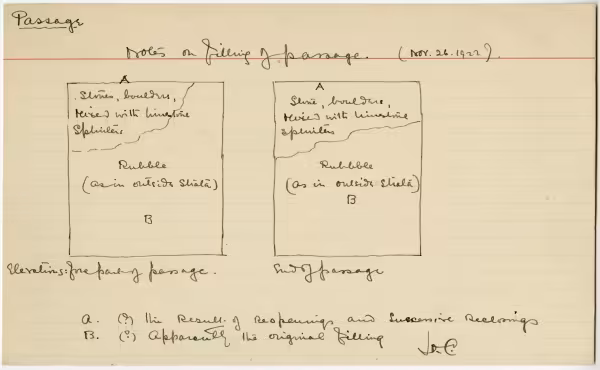 Passage
Notes on filling of passage. (Nov. 26. 1922).
A
Stones, boulders,
mixed with limestone
splinters
Rubble
(as in outside strata)
B
A
Stone, boulders,
mixed with limestone
splinters
Rubble
(as in outside strata)
B
Elevations: fore part of passage.
End of passage
A. (?) the Result of Reopenings and Successive Reclosings
B. (?) Apparently the original filling